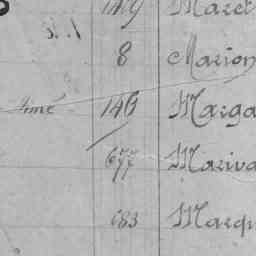 149 Maret
8 Marion
Aimé 14B Marga
677 Mariva
683 Marqu